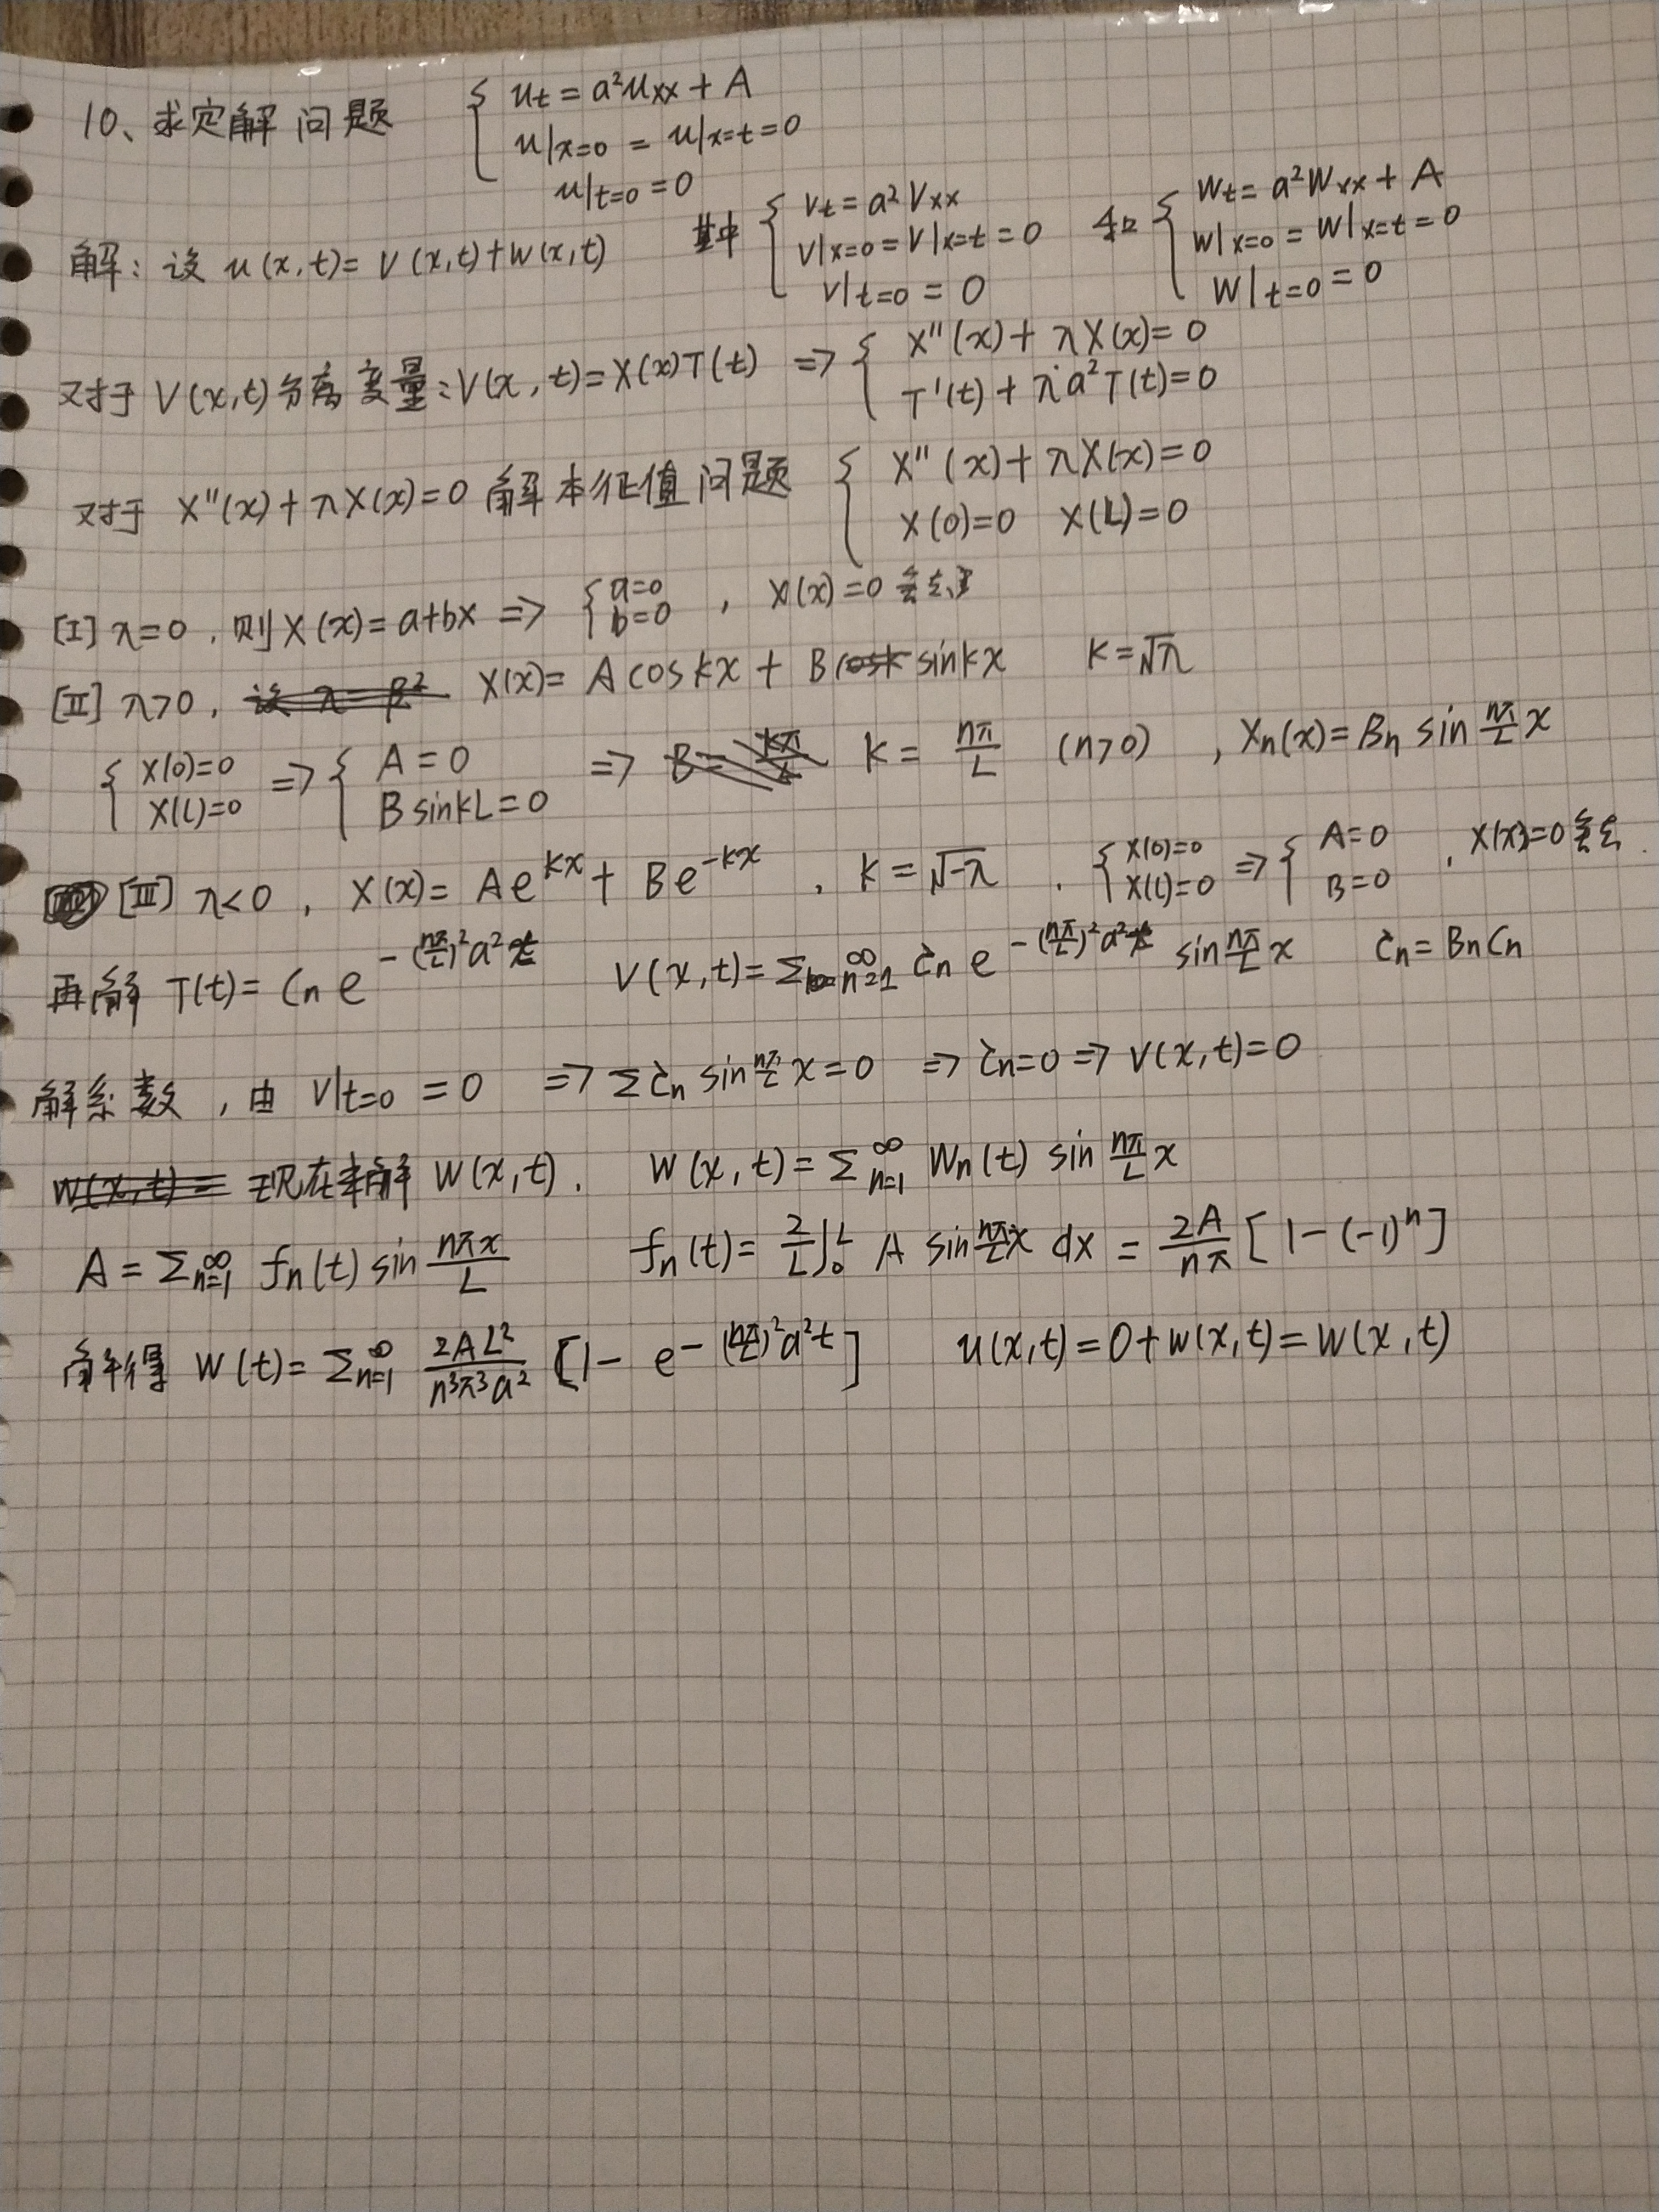 10、求定解问题 { u_t = a²u_xx + A
u|x=0 = u|x=t = 0
u|t=0 = 0
解：设 u(x,t) = V(x,t) + W(x,t) 其中 { V_t = a²V_xx 和 { W_t = a²W_xx + A
V|x=0 = V|x=t = 0 W|x=0 = W|x=t = 0
V|t=0 = 0 W|t=0 = 0
对于 V(x,t) 分离变量：V(x,t) = X(x)T(t) ⇒ { X''(x) + λX(x) = 0
T'(t) + λa²T(t) = 0
对于 X''(x) + λX(x) = 0 解本征值问题 { X''(x) + λX(x) = 0
X(0)=0 X(L)=0
[I] λ=0，则 X(x) = a+bx ⇒ { a=0
b=0 ，X(x)=0 舍去
[II] λ>0，X(x) = A cos kx + B sin kx k = √λ
{ X(0)=0 ⇒ { A = 0 ⇒ k = nπ/L (n>0)，Xn(x) = Bn sin nπ/L x
X(L)=0 B sin kL = 0
[III] λ<0，X(x) = Ae^{kx} + Be^{-kx}，k = √-λ . { X(0)=0 ⇒ { A=0 ，X(x)=0 舍去.
X(L)=0 B=0
再解 T(t) = Cn e^{-(nπ/L)²a²t} V(x,t) = Σ_{n=1}^∞ C̀n e^{-(nπ/L)²a²t} sin nπ/L x C̀n = BnCn
解系数，由 V|t=0 = 0 ⇒ Σ C̀n sin nπ/L x = 0 ⇒ C̀n = 0 ⇒ V(x,t) = 0
W(x,t) = 现在来解 W(x,t). W(x,t) = Σ_{n=1}^∞ Wn(t) sin nπ/L x
A = Σ_{n=1}^∞ fn(t) sin nπx/L fn(t) = 2/L ∫₀^L A sin nπ/L x dx = 2A/nπ [1-(-1)^n]
解得 W(t) = Σ_{n=1}^∞ 2AL²/n³π³a² [1 - e^{-(nπ/L)²a²t}] u(x,t) = 0 + W(x,t) = W(x,t)